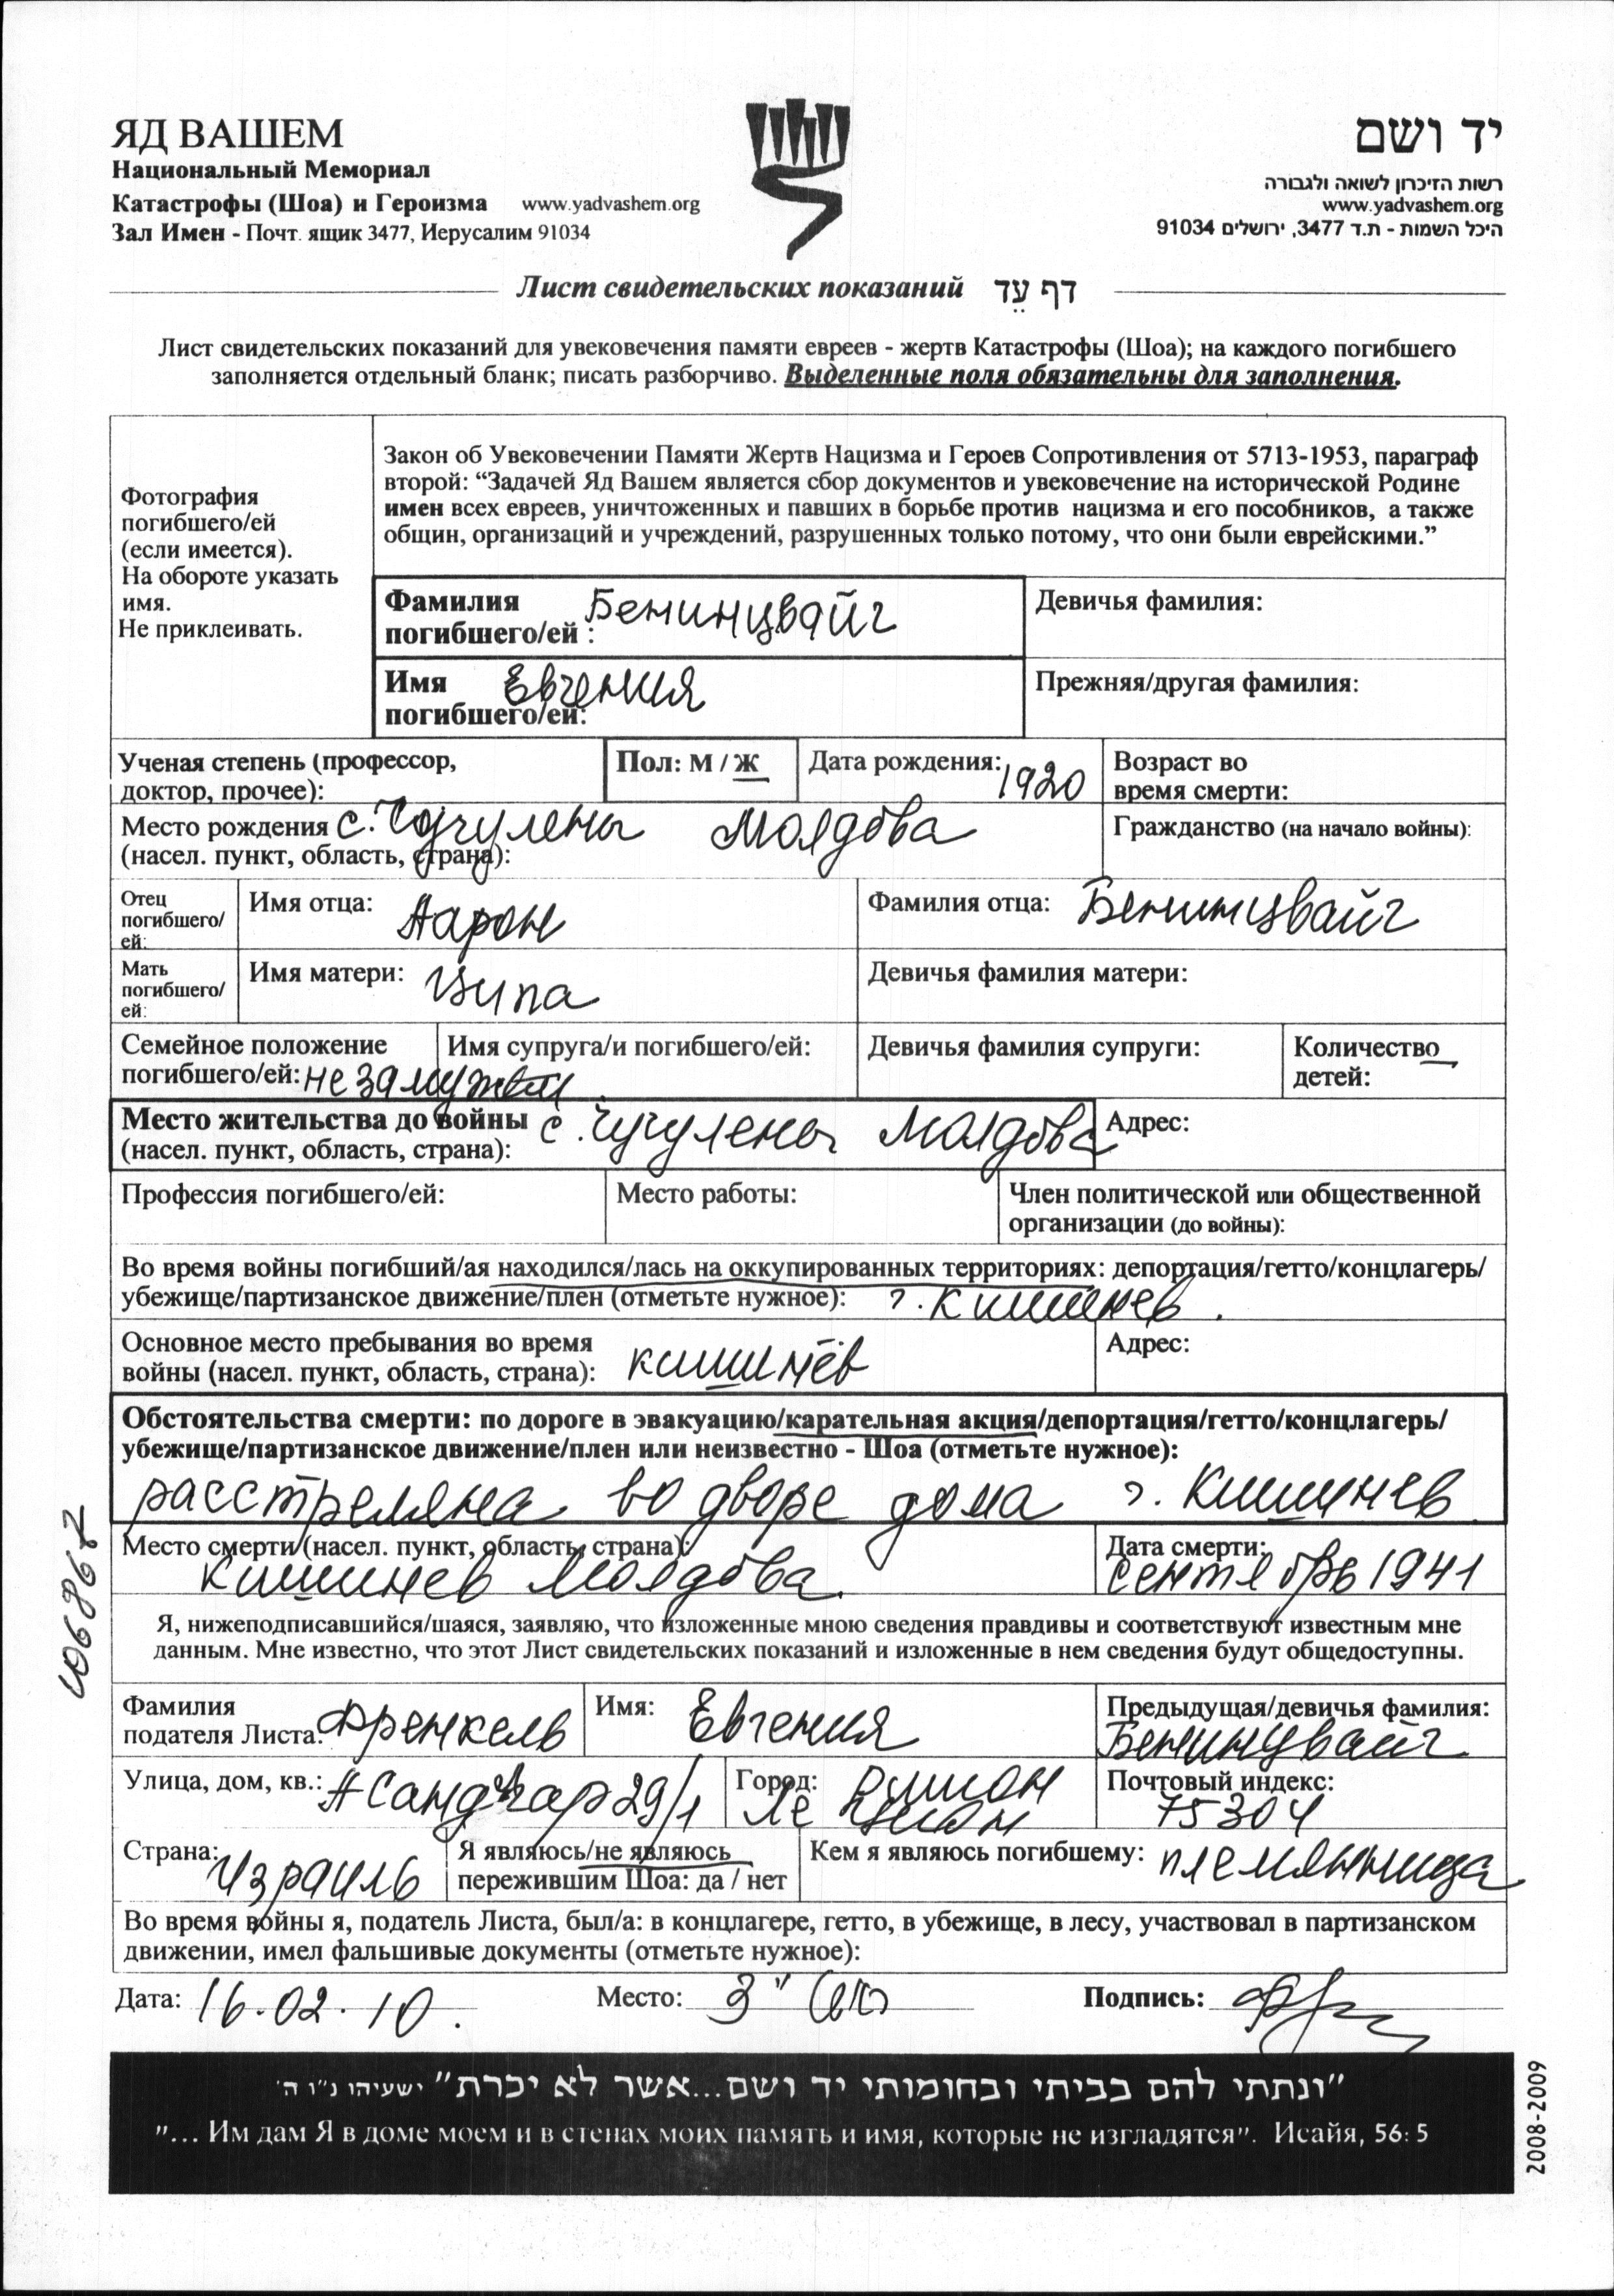 ЯД ВАШЕМ
Национальный Мемориал
Катастрофы (Шоа) и Героизма www.yadvashem.org
Зал Имен - Почт. ящик 3477, Иерусалим 91034
יד ושם
רשות הזיכרון לשואה ולגבורה
www.yadvashem.org
היכל השמות - ת.ד 3477, ירושלים 91034
Лист свидетельских показаний דף עֵד
Лист свидетельских показаний для увековечения памяти евреев - жертв Катастрофы (Шоа); на каждого погибшего
заполняется отдельный бланк; писать разборчиво. Выделенные поля обязательны для заполнения.
Фотография
погибшего/ей
(если имеется).
На обороте указать
имя.
Не приклеивать.
Закон об Увековечении Памяти Жертв Нацизма и Героев Сопротивления от 5713-1953, параграф
второй: “Задачей Яд Вашем является сбор документов и увековечение на исторической Родине
имен всех евреев, уничтоженных и павших в борьбе против нацизма и его пособников, а также
общин, организаций и учреждений, разрушенных только потому, что они были еврейскими.”
Фамилия
погибшего/ей : Бенинцвайг
Девичья фамилия:
Имя
погибшего/ей: Евгения
Прежняя/другая фамилия:
Ученая степень (профессор,
доктор, прочее):
Пол: М / Ж
Дата рождения: 1920
Возраст во
время смерти:
Место рождения с. Чучулены Молдова
(насел. пункт, область, страна):
Гражданство (на начало войны):
Отец
погибшего/
ей:
Имя отца: Аарон
Фамилия отца: Бенинцвайг
Мать
погибшего/
ей:
Имя матери: Ципа
Девичья фамилия матери:
Семейное положение
погибшего/ей: не замужем
Имя супруга/и погибшего/ей:
Девичья фамилия супруги:
Количество
детей:
Место жительства до войны с. Чучулены Молдова
(насел. пункт, область, страна):
Адрес:
Профессия погибшего/ей:
Место работы:
Член политической или общественной
организации (до войны):
Во время войны погибший/ая находился/лась на оккупированных территориях: депортация/гетто/концлагерь/
убежище/партизанское движение/плен (отметьте нужное): г. Кишинев.
Основное место пребывания во время
войны (насел. пункт, область, страна): кишинёв
Адрес:
Обстоятельства смерти: по дороге в эвакуацию/карательная акция/депортация/гетто/концлагерь/
убежище/партизанское движение/плен или неизвестно - Шоа (отметьте нужное):
расстреляна во дворе дома г. Кишинев.
Место смерти (насел. пункт, область, страна):
Кишинев Молдова.
Дата смерти:
сентябрь 1941
Я, нижеподписавшийся/шаяся, заявляю, что изложенные мною сведения правдивы и соответствуют известным мне
данным. Мне известно, что этот Лист свидетельских показаний и изложенные в нем сведения будут общедоступны.
Фамилия
подателя Листа: Френкель
Имя: Евгения
Предыдущая/девичья фамилия:
Бенинцвайг
Улица, дом, кв.: 29/1
Город: Ришон
Ле Цион
Почтовый индекс:
75304
Страна: Израиль
Я являюсь/не являюсь
пережившим Шоа: да / нет
Кем я являюсь погибшему: племянница
Во время войны я, податель Листа, был/а: в концлагере, гетто, в убежище, в лесу, участвовал в партизанском
движении, имел фальшивые документы (отметьте нужное):
Дата: 16.02.10.
Место:
Подпись:
"ונתתי להם בביתי ובחומותי יד ושם...אשר לא יכרת" ישעיהו נ"ו ה'
"... Им дам Я в доме моем и в стенах моих память и имя, которые не изгладятся". Исайя, 56: 5
2008-2009